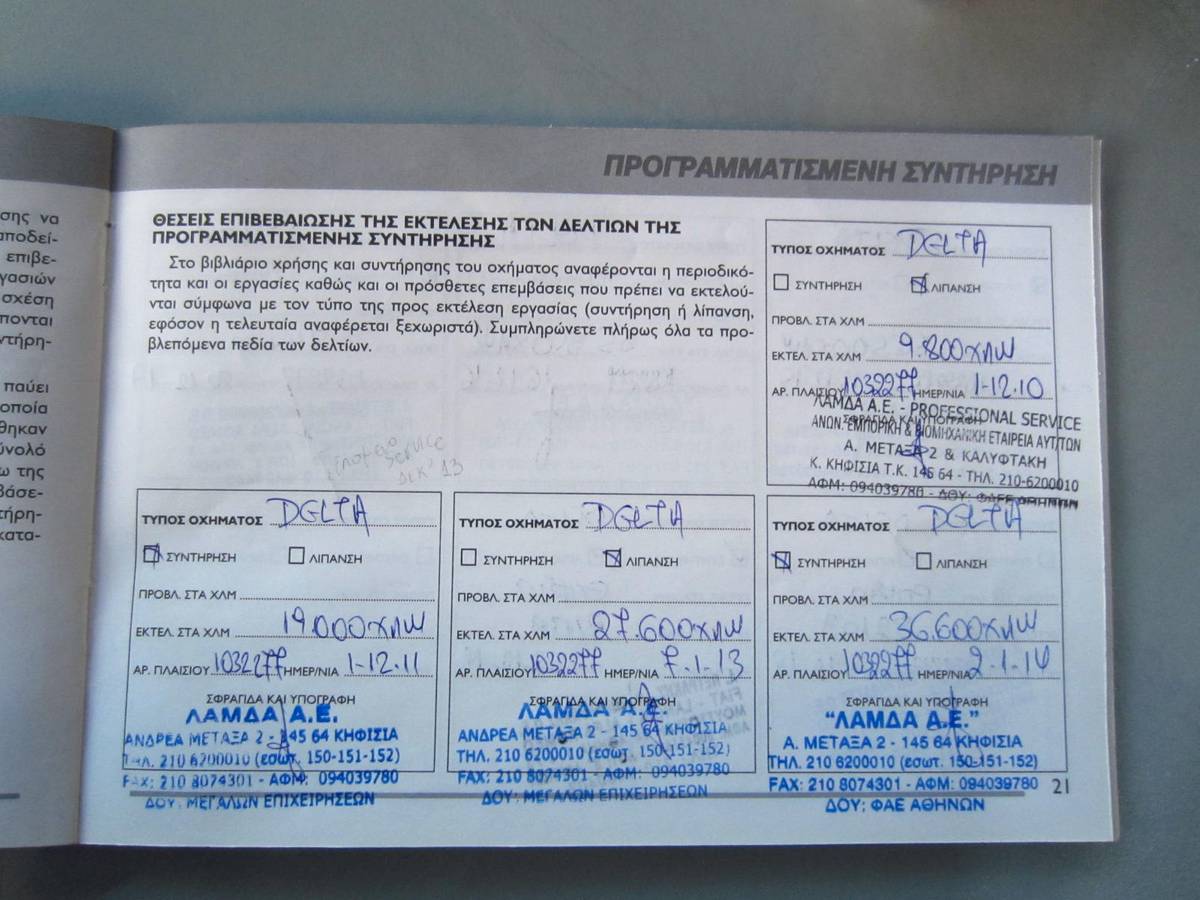 σης να
αποδεί-
επιβε-
γασιών
σχέση
πονται
ντήρη-
παύει
οποία
θηκαν
ύνολό
ω της
βάσε-
τήρη-
κατα-
ΠΡΟΓΡΑΜΜΑΤΙΣΜΕΝΗ ΣΥΝΤΗΡΗΣΗ
ΘΕΣΕΙΣ ΕΠΙΒΕΒΑΙΩΣΗΣ ΤΗΣ ΕΚΤΕΛΕΣΗΣ ΤΩΝ ΔΕΛΤΙΩΝ ΤΗΣ
ΠΡΟΓΡΑΜΜΑΤΙΣΜΕΝΗΣ ΣΥΝΤΗΡΗΣΗΣ
Στο βιβλιάριο χρήσης και συντήρησης του οχήματος αναφέρονται η περιοδικό-
τητα και οι εργασίες καθώς και οι πρόσθετες επεμβάσεις που πρέπει να εκτελού-
νται σύμφωνα με τον τύπο της προς εκτέλεση εργασίας (συντήρηση ή λίπανση,
εφόσον η τελευταία αναφέρεται ξεχωριστά). Συμπληρώνετε πλήρως όλα τα προ-
βλεπόμενα πεδία των δελτίων.
service
Δεκ' 13
ΤΥΠΟΣ ΟΧΗΜΑΤΟΣ DELTA
ΣΥΝΤΗΡΗΣΗ ΛΙΠΑΝΣΗ
ΠΡΟΒΛ. ΣΤΑ ΧΛΜ
ΕΚΤΕΛ. ΣΤΑ ΧΛΜ 9.800χλμ
ΑΡ. ΠΛΑΙΣΙΟΥ 1032277 ΗΜΕΡ/ΝΙΑ 1-12.10
ΣΦΡΑΓΙΔΑ ΚΑΙ ΥΠΟΓΡΑΦΗ
ΛΑΜΔΑ Α.Ε. - PROFESSIONAL SERVICE
ΑΝΩΝ. ΕΜΠΟΡΙΚΗ & ΒΙΟΜΗΧΑΝΙΚΗ ΕΤΑΙΡΕΙΑ ΑΥΤ/ΤΩΝ
Α. ΜΕΤΑΞΑ 2 & ΚΑΛΥΦΤΑΚΗ
Κ. ΚΗΦΙΣΙΑ Τ.Κ. 145 64 - ΤΗΛ. 210-6200010
ΑΦΜ: 094039780 - ΔΟΥ: ΦΑΕΕ ΑΘΗΝΩΝ
ΤΥΠΟΣ ΟΧΗΜΑΤΟΣ DELTA
ΣΥΝΤΗΡΗΣΗ ΛΙΠΑΝΣΗ
ΠΡΟΒΛ. ΣΤΑ ΧΛΜ
ΕΚΤΕΛ. ΣΤΑ ΧΛΜ 19.000χλμ
ΑΡ. ΠΛΑΙΣΙΟΥ 1032277 ΗΜΕΡ/ΝΙΑ 1-12.11
ΣΦΡΑΓΙΔΑ ΚΑΙ ΥΠΟΓΡΑΦΗ
ΛΑΜΔΑ Α.Ε.
ΑΝΔΡΕΑ ΜΕΤΑΞΑ 2 - 145 64 ΚΗΦΙΣΙΑ
ΤΗΛ. 210 6200010 (εσωτ. 150-151-152)
FAX: 210 8074301 - ΑΦΜ: 094039780
ΔΟΥ: ΜΕΓΑΛΩΝ ΕΠΙΧΕΙΡΗΣΕΩΝ
ΤΥΠΟΣ ΟΧΗΜΑΤΟΣ DELTA
ΣΥΝΤΗΡΗΣΗ ΛΙΠΑΝΣΗ
ΠΡΟΒΛ. ΣΤΑ ΧΛΜ
ΕΚΤΕΛ. ΣΤΑ ΧΛΜ 27.600χλμ
ΑΡ. ΠΛΑΙΣΙΟΥ 1032277 ΗΜΕΡ/ΝΙΑ 7.1.13
ΣΦΡΑΓΙΔΑ ΚΑΙ ΥΠΟΓΡΑΦΗ
ΛΑΜΔΑ Α.Ε.
ΑΝΔΡΕΑ ΜΕΤΑΞΑ 2 - 145 64 ΚΗΦΙΣΙΑ
ΤΗΛ. 210 6200010 (εσωτ. 150-151-152)
FAX: 210 8074301 - ΑΦΜ: 094039780
ΔΟΥ: ΜΕΓΑΛΩΝ ΕΠΙΧΕΙΡΗΣΕΩΝ
ΤΥΠΟΣ ΟΧΗΜΑΤΟΣ DELTA
ΣΥΝΤΗΡΗΣΗ ΛΙΠΑΝΣΗ
ΠΡΟΒΛ. ΣΤΑ ΧΛΜ
ΕΚΤΕΛ. ΣΤΑ ΧΛΜ 36.600χλμ
ΑΡ. ΠΛΑΙΣΙΟΥ 1032277 ΗΜΕΡ/ΝΙΑ 2.1.14
ΣΦΡΑΓΙΔΑ ΚΑΙ ΥΠΟΓΡΑΦΗ
"ΛΑΜΔΑ Α.Ε."
Α. ΜΕΤΑΞΑ 2 - 145 64 ΚΗΦΙΣΙΑ
ΤΗΛ. 210 6200010 (εσωτ. 150-151-152)
FAX: 210 8074301 - ΑΦΜ: 094039780
ΔΟΥ: ΦΑΕ ΑΘΗΝΩΝ
21